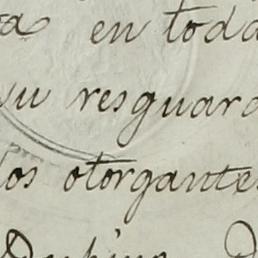 en toda
su resguard
los otorgantes